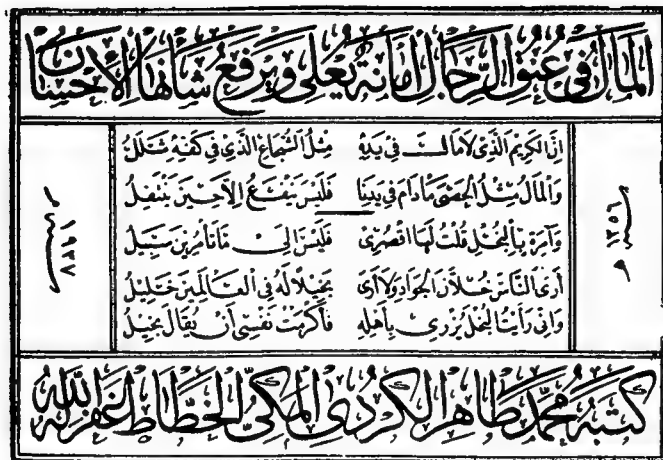 المَالُ فِى عُنُقِ الرِّجَالِ أَمَانَةٌ يُعْلِى وَيَرْفَعُ شَأْنَهَا الْإِحْسَانُ
اِنَّ الكَرِيمَ الَّذِى لَامَالَ فِى يَدِهِ مِثْلُ الشُّجَاعِ الَّذِى فِى كَفِّهِ شَلَلُ
وَالمَالُ مِثْلُ الحَصَى مَادَامَ فِى يَدِنَا فَلَيْسَ يَنْفَعُ اِلَّا حِيْنَ يَنْتَقِلُ
وَآمِرَةٍ بِالبُخْلِ قُلْتُ لَهَا اقْصُرِى فَلَيْسَ اِلَىٰ مَا تَأْمُرِيْنَ سَبِيْلُ
أَرَى النَّاسَ خُلَّانَ الجَوَادِ وَلَا أَرَى بَخِيْلًا لَهُ فِى العَالَمِيْنَ خَلِيْلُ
وَاِنِّى رَأَيْتُ البُخْلَ يُزْرِى بِأَهْلِهِ فَأَكْرَمْتُ نَفْسِى أَنْ يُقَالَ بَخِيْلُ
سنة ١٣٥٦ هـ
سنة ١٩٣٧ م
كَتَبَهُ مُحَمَّد طَاهِر الكُرْدِى المَكِّىُّ الخَطَّاط غَفَرَ اللّٰهُ لَهُ